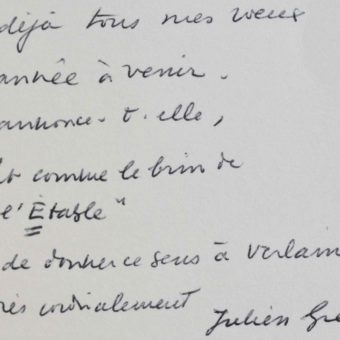 déjà tous mes voeux
année à venir.
annonce-t-elle,
comme le brin de
l'Étable"
de donner ce sens à Verlain
cordialement
Julien Gre